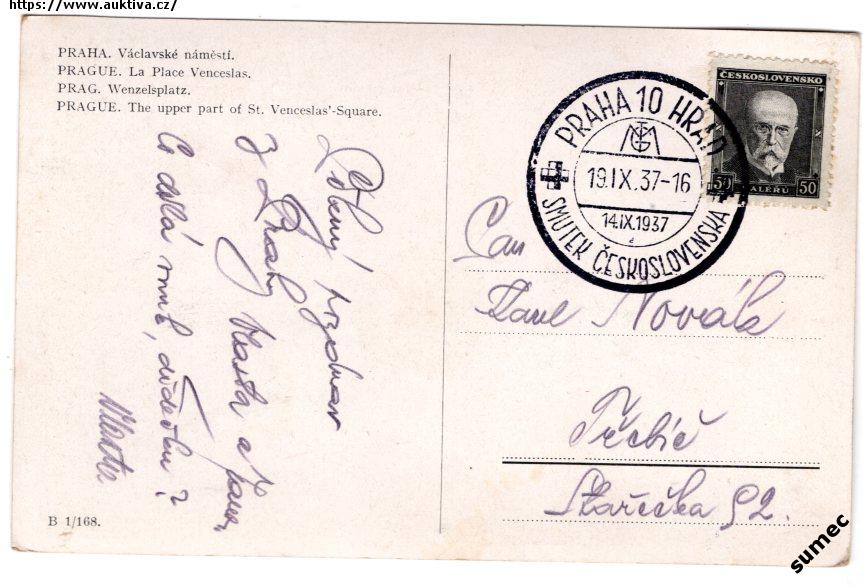 https://www.auktiva.cz/
PRAHA. Václavské náměstí.
PRAGUE. La Place Venceslas.
PRAG. Wenzelsplatz.
PRAGUE. The upper part of St. Venceslas'-Square.
ČESKOSLOVENSKO
50 HALÉŘŮ 50
PRAHA 10 HRAD
TGM
19.IX.37-16
14.IX.1937
SMUTEK ČESKOSLOVENSKA
Pan
Pavel Novák
Třebíč
Stařečka 92.
z Prahy Vlasta a
Co dělá
Vlasta
B 1/168.
sumec